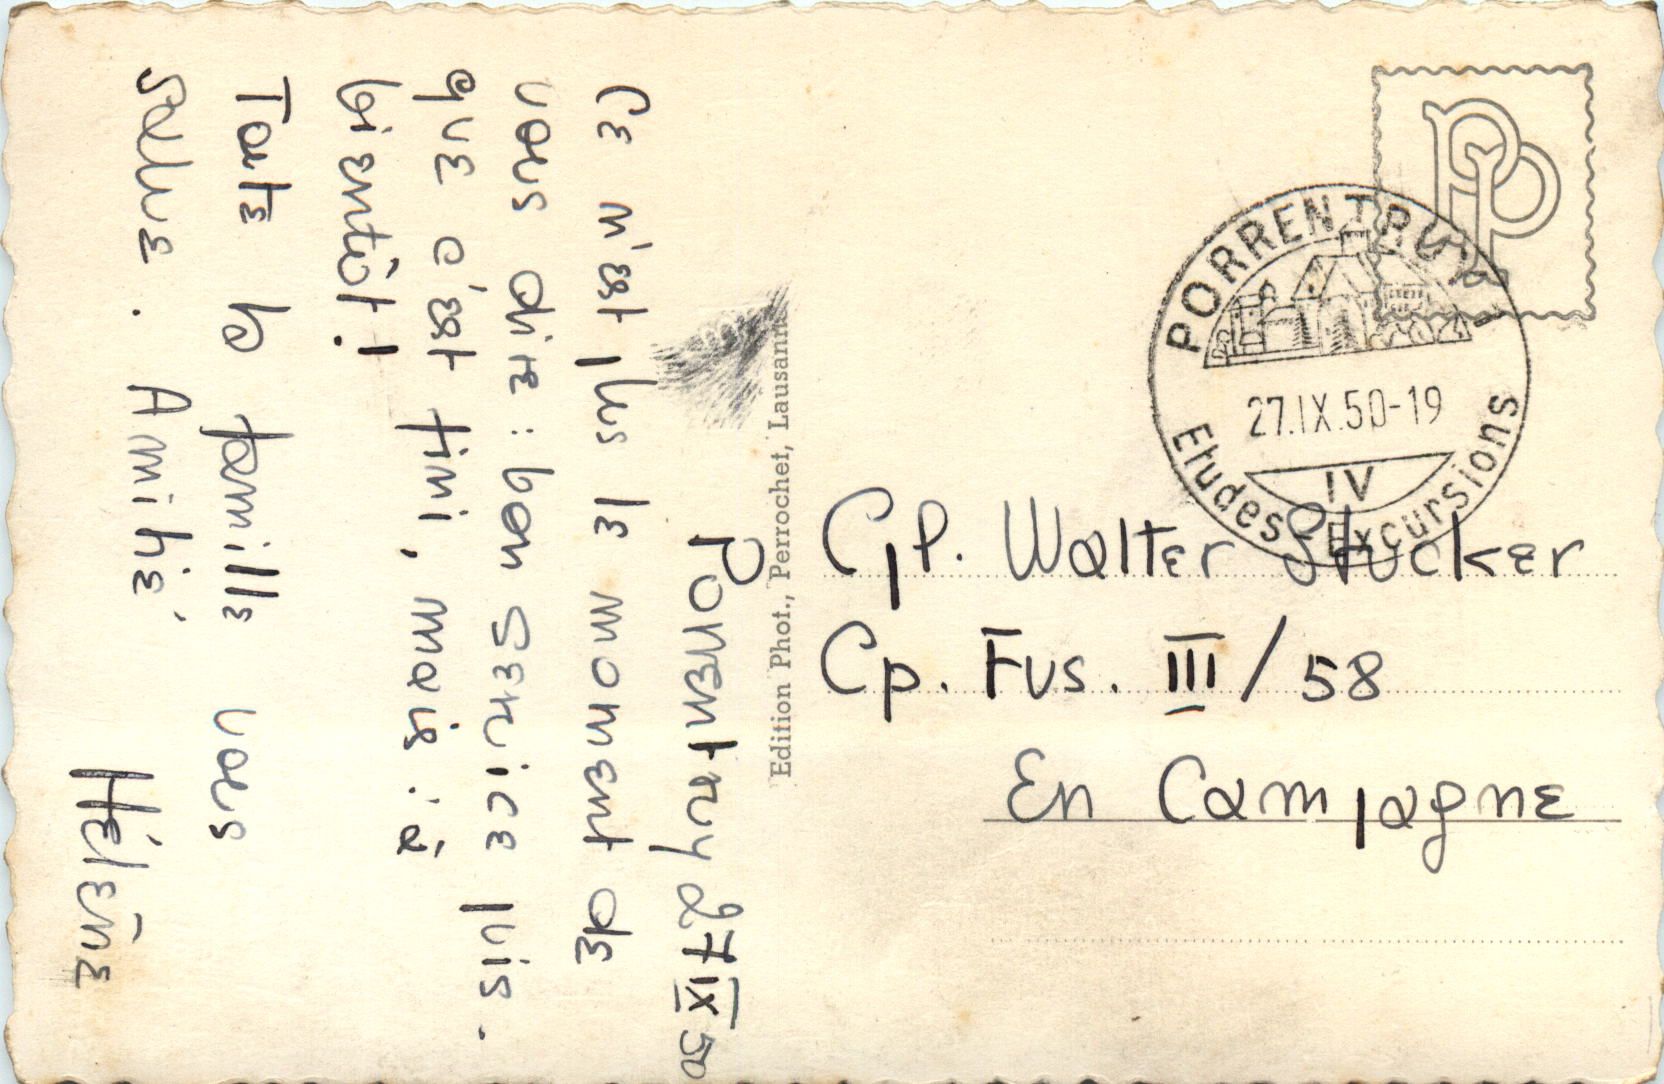 Porrentruy 27 IX 50
Ce n'est plus le moment de
vous dire : bon service puis.
que c'est fini, mais : à
bientôt !
Toute la famille vous
salue. Amitié
Hélène
Edition Phot., Perrochet, Lausanne
PP
PORRENTRUY 1
27.IX.50-19
IV
Etudes Excursions
Cpl. Walter Stucker
Cp. Fus. III / 58
En Campagne